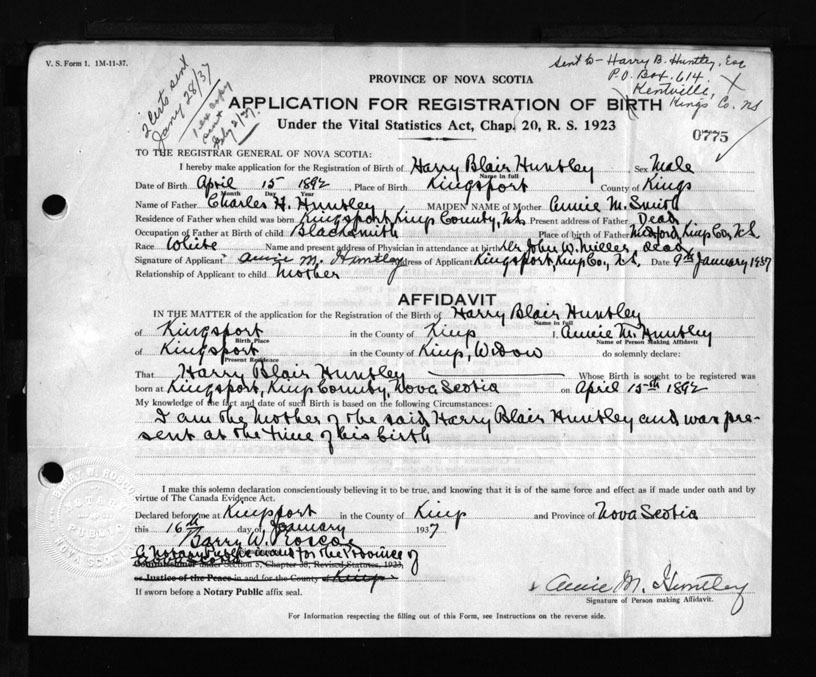 V. S. Form 1. 1M-11-37.
2 Certs sent
Jany 28/37
1 ex copy
sent
July 2/37.
Sent to - Harry B. Huntley, Esq
P.O. Box. 614.
Kentville,
Kings Co. NS
PROVINCE OF NOVA SCOTIA
APPLICATION FOR REGISTRATION OF BIRTH
Under the Vital Statistics Act, Chap. 20, R. S. 1923
0775
TO THE REGISTRAR GENERAL OF NOVA SCOTIA:
I hereby make application for the Registration of Birth of Harry Blair Huntley Sex Male
Name in full
Date of Birth April 15 1892, Place of Birth Kingsport County of Kings
Month Day Year
Name of Father Charles H. Huntley MAIDEN NAME of Mother Annie M. Smith
Residence of Father when child was born Kingsport, Kings County, N.S. Present address of Father Dead
Occupation of Father at Birth of child Blacksmith Place of birth of Father Medford, Kings Co., N.S.
Race White Name and present address of Physician in attendance at birth Dr. John W. Miller dead
Signature of Applicant Annie M. Huntley Address of Applicant Kingsport, Kings Co., N.S. Date 9th January 1937
Relationship of Applicant to child Mother
AFFIDAVIT
IN THE MATTER of the application for the Registration of the Birth of Harry Blair Huntley
Name in full
of Kingsport in the County of Kings I, Annie M. Huntley
Birth Place Name of Person Making Affidavit
of Kingsport in the County of Kings, Widow do solemnly declare:
Present Residence
That Harry Blair Huntley Whose Birth is sought to be registered was
born at Kingsport, Kings County, Nova Scotia on April 15th 1892
My knowledge of the fact and date of such Birth is based on the following Circumstances:
I am the mother of the said Harry Blair Huntley and was pre-
sent at the time of his birth
I make this solemn declaration conscientiously believing it to be true, and knowing that it is of the same force and effect as if made under oath and by
virtue of The Canada Evidence Act.
Declared before me at Kingsport in the County of Kings and Province of Nova Scotia
this 16th day of January 1937
Barry W. Roscoe
A Notary Public in and for the Province of
Nova Scotia
Commissioner under Section 5, Chapter 38, Revised Statutes, 1923,
or Justice of the Peace in and for the County of Kings
If sworn before a Notary Public affix seal.
x Annie M. Huntley
Signature of Person making Affidavit.
For Information respecting the filling out of this Form, see Instructions on the reverse side.
BARRY W. ROSCOE
NOTARY
PUBLIC
NOVA SCOTIA